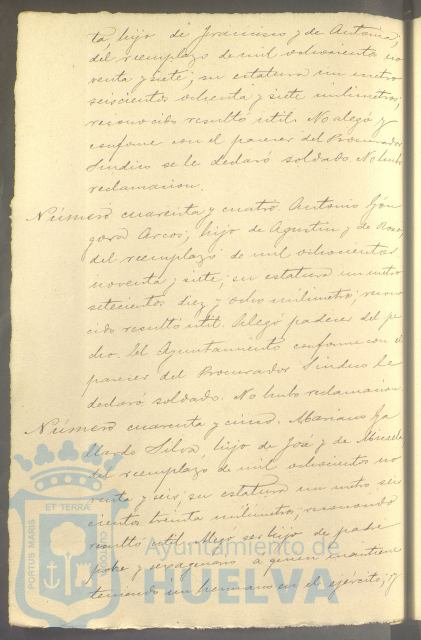 ta, hijo de Francisco y de Antonia;
del reemplazo de mil ochocientos no
venta y siete; su estatura un metro
seiscientos ochenta y siete milimetros;
reconocido resultó util. No alegó y
conforme con el parecer del Procurador
Sindico se le declaró soldado. No hubo
reclamacion.
Número cuarenta y cuatro. Antonio Gón
gora Arcos, hijo de Agustin y de Rosa,
del reemplazo de mil ochocientos
noventa y siete; su estatura un metro
setecientos diez y ocho milimetros; recono
cido resultó util. Alegó padecer del pe
cho. El Ayuntamiento conforme con el
parecer del Procurador Sindico le
declaró soldado. No hubo reclamacion.
Número cuarenta y cinco. Mariano Ga
llardo Silva, hijo de José y de Micaela
del reemplazo de mil ochocientos no
venta y seis, su estatura un metro seis
cientos treinta milimetros; reconocido
resultó util. Alegó ser hijo de padre
pobre y sexagenario a quien mantiene
teniendo un hermano en el ejército; y
PORTUS MARIS
ET TERRÆ
CUSTODIA
Ayuntamiento de
HUELVA